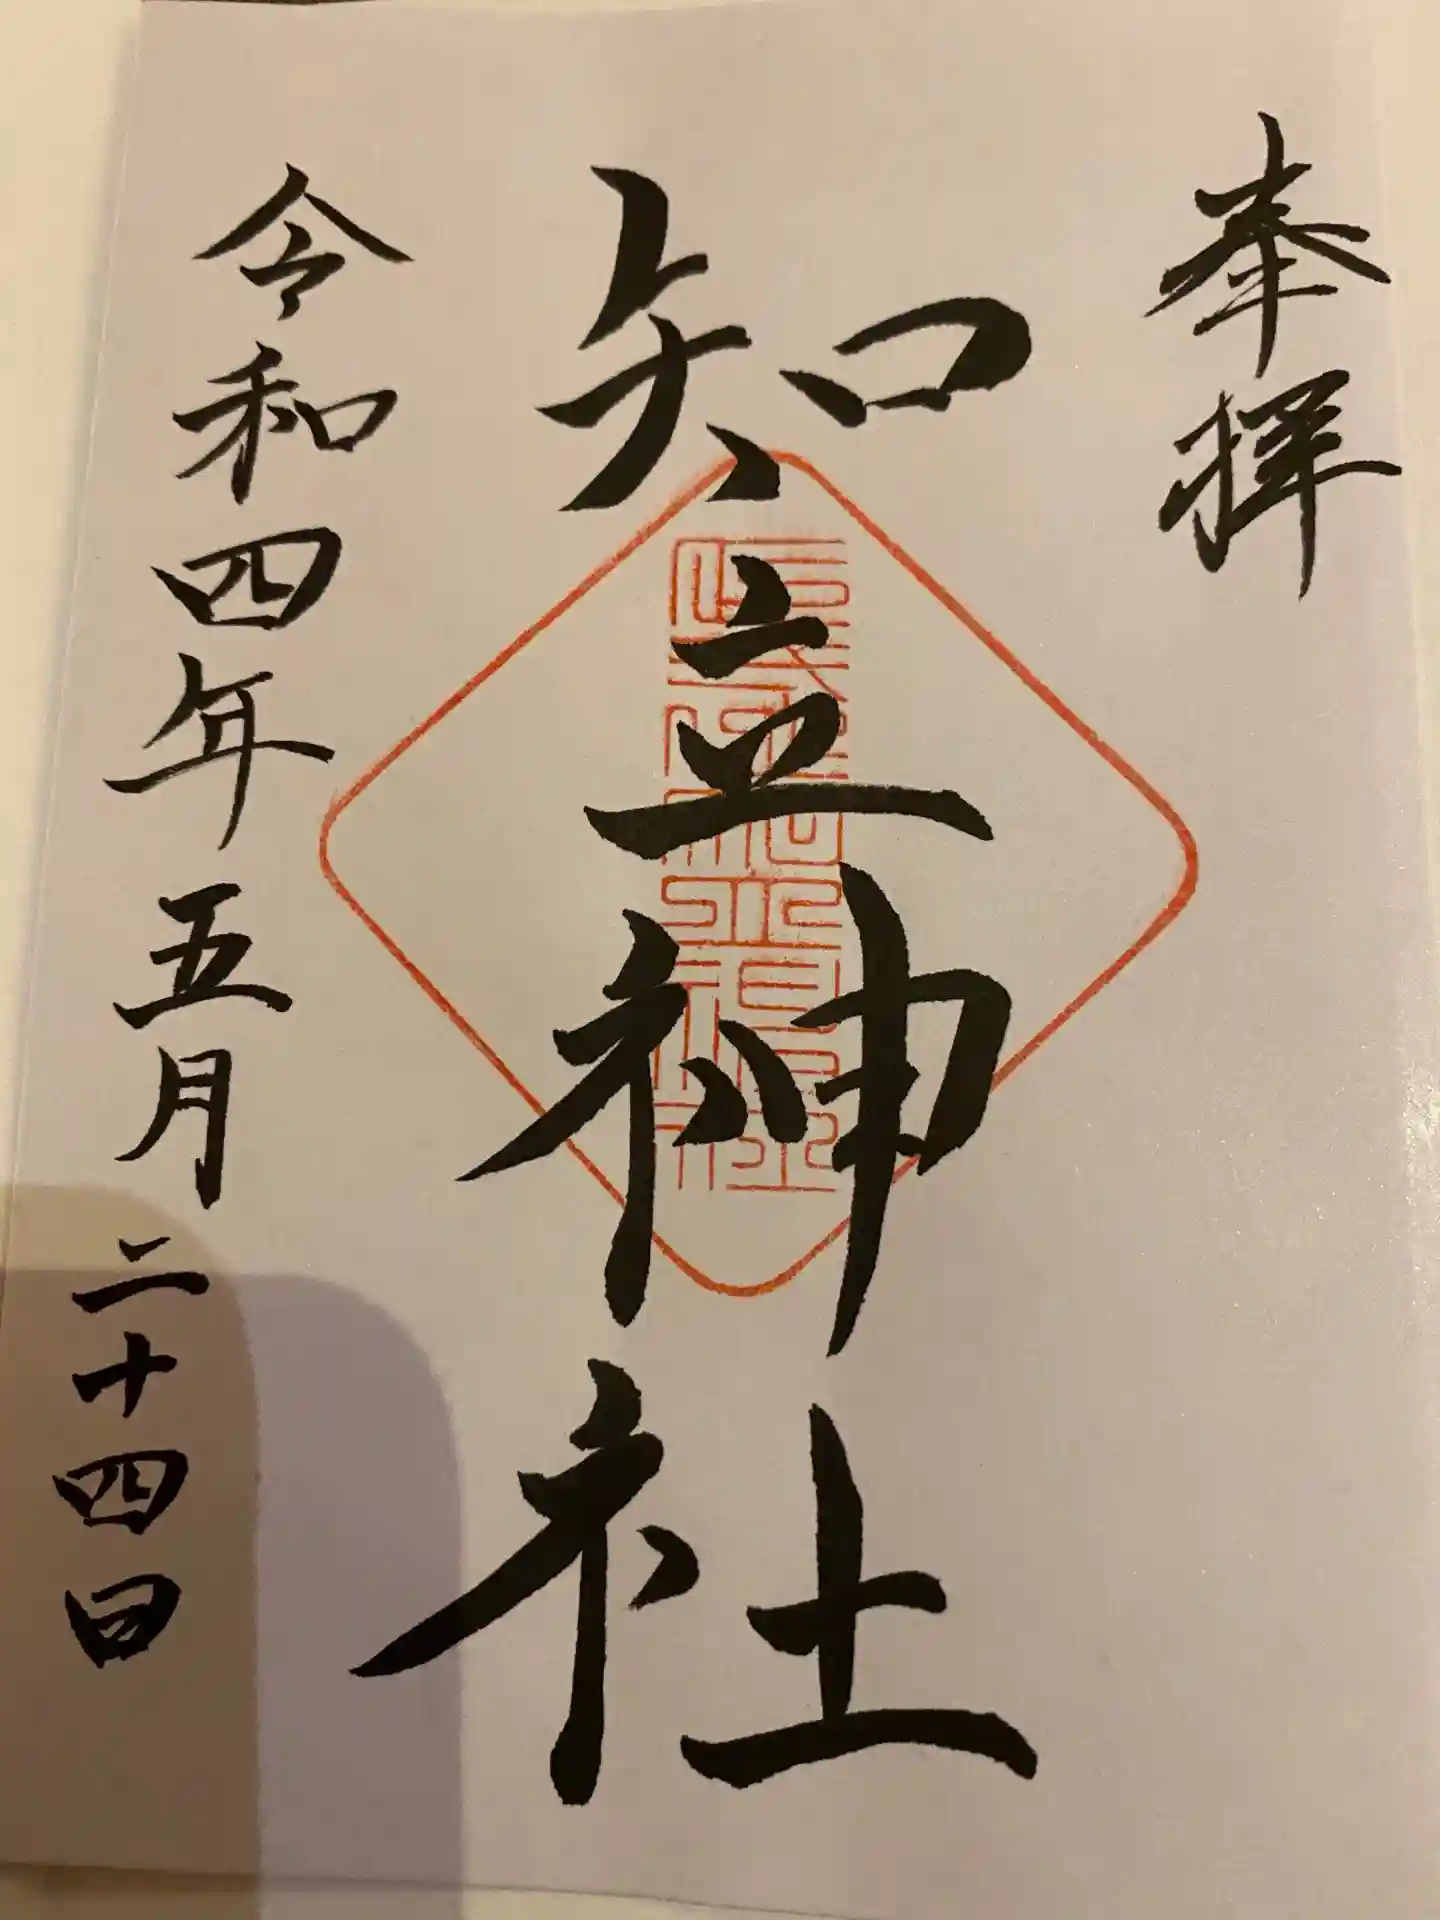 奉拝
知立神社
令和四年五月二十四日